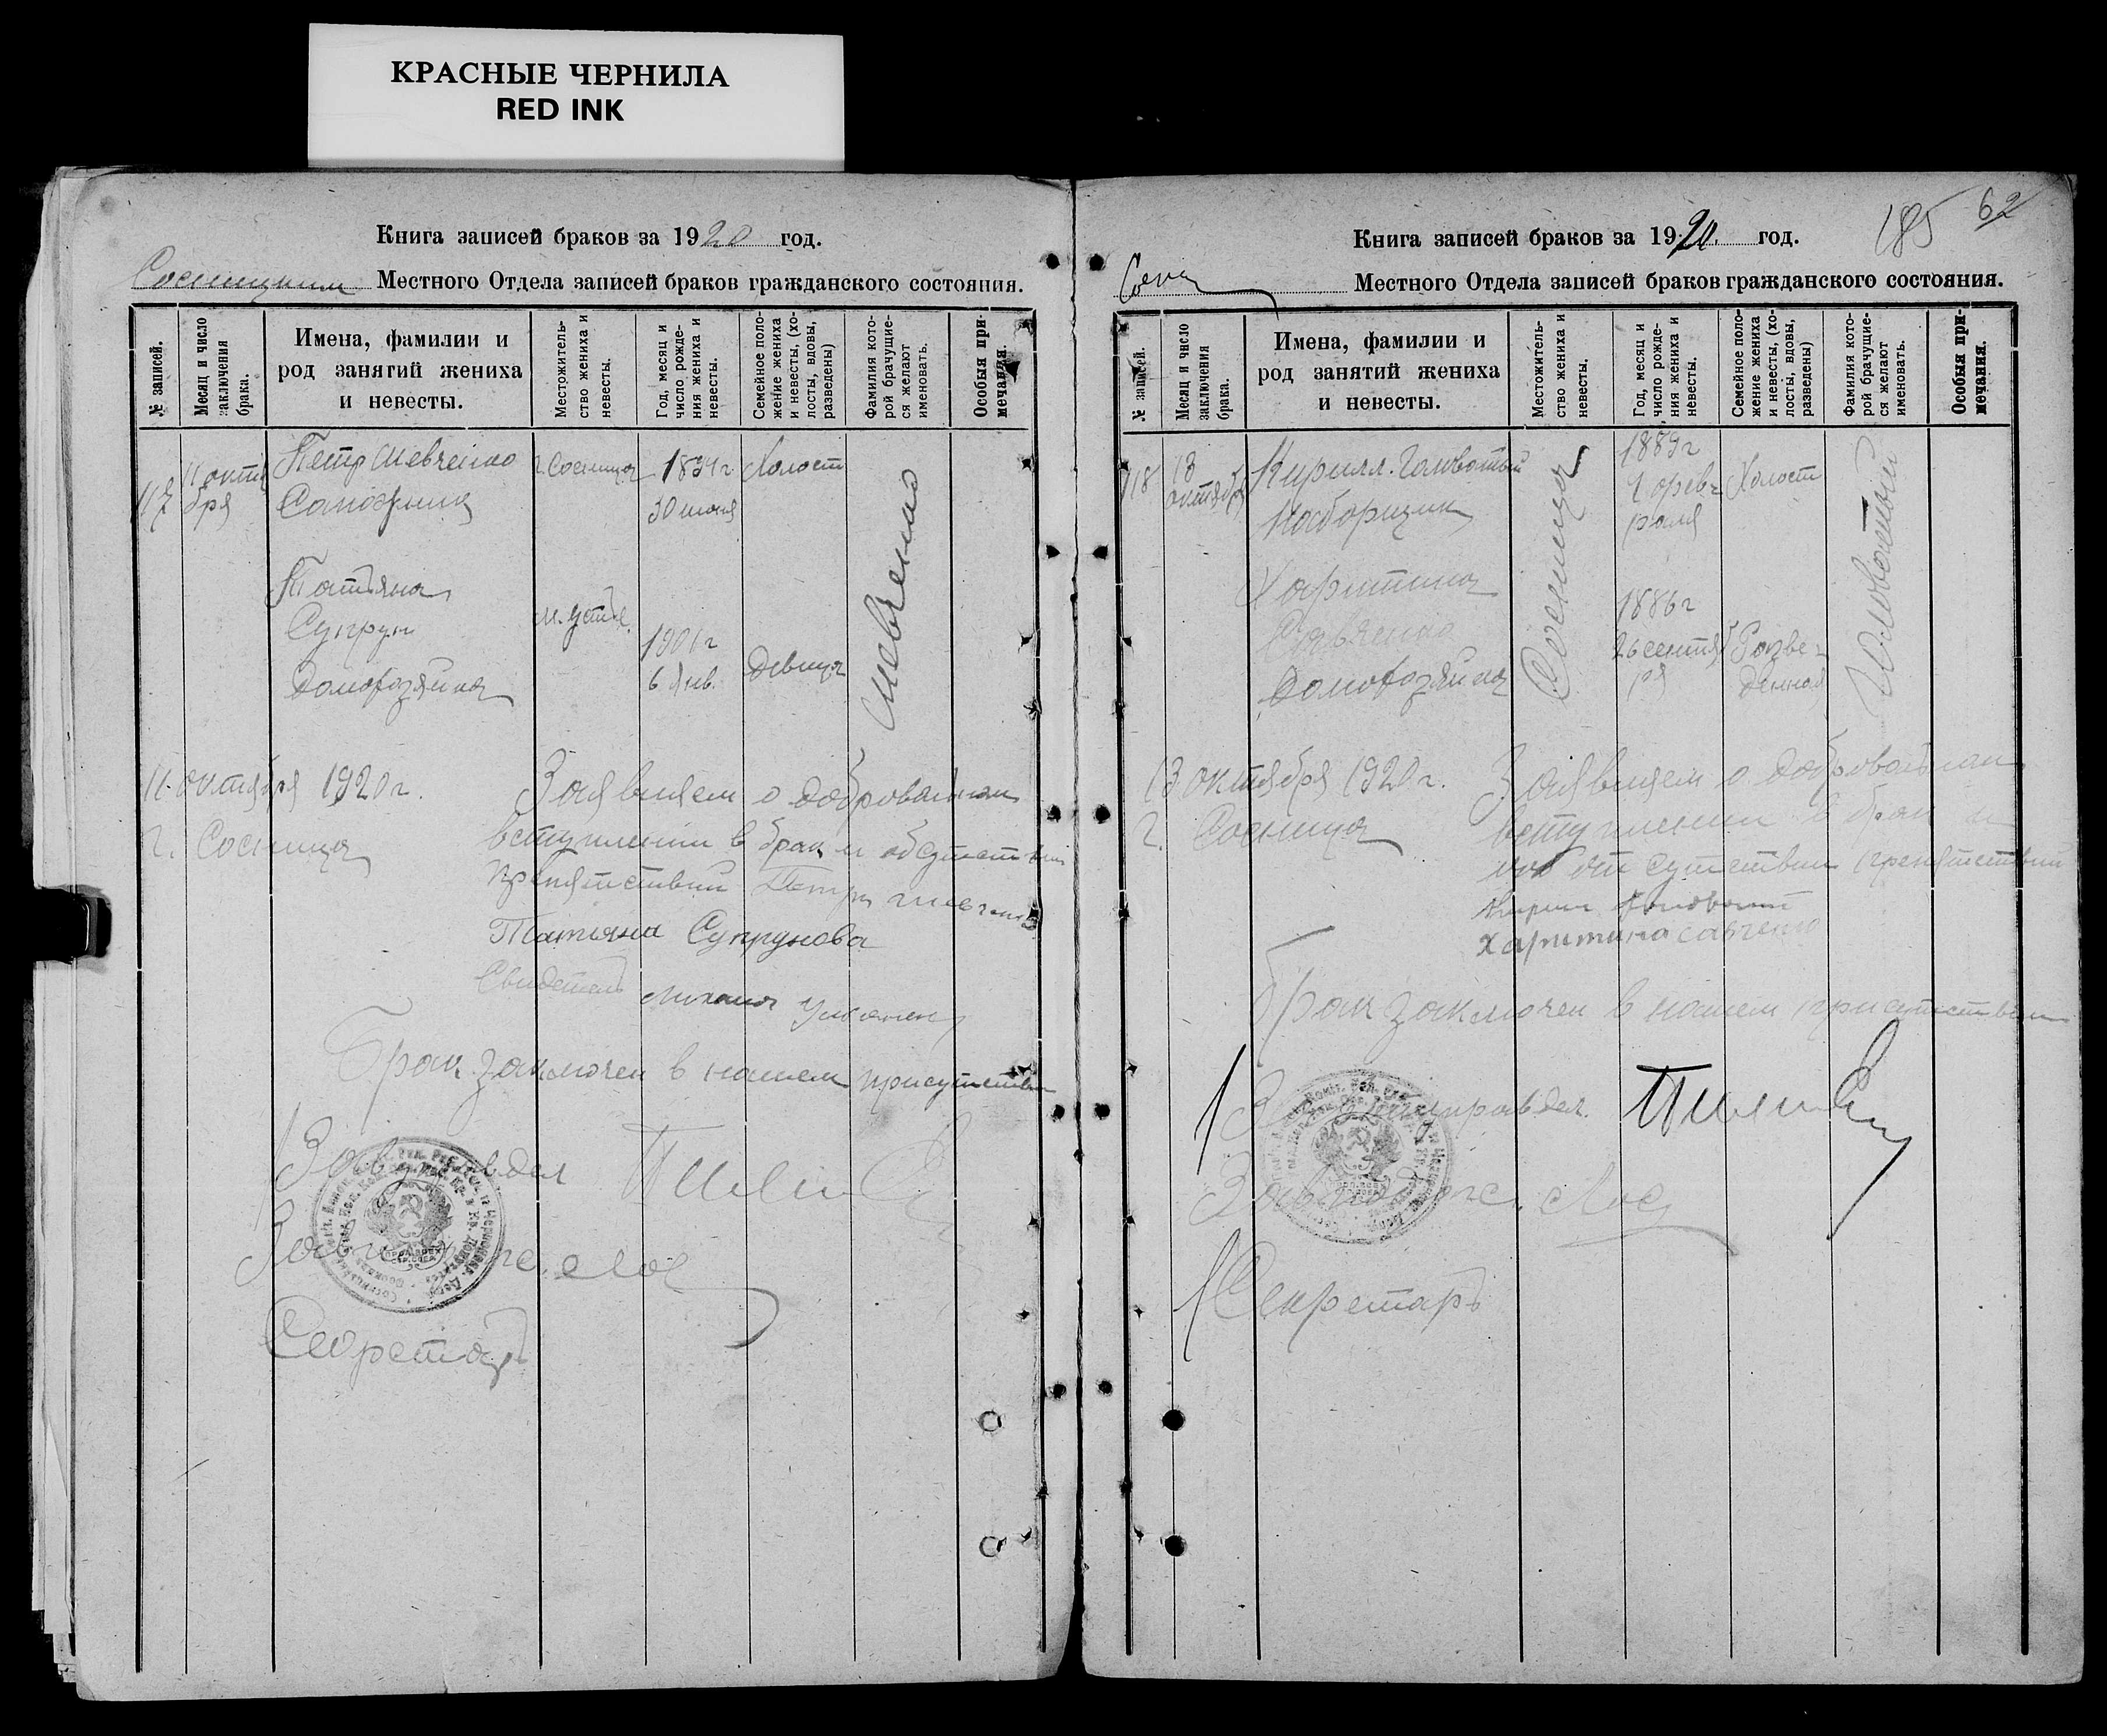 КРАСНЫЕ ЧЕРНИЛА
RED INK
Книга записей браков за 1920 год.
Сосницким Местного Отдела записей браков гражданского состояния.
№ записей.
Месяц и число заключения брака.
Имена, фамилии и род занятий жениха и невесты.
Местожитель-ство жениха и невесты.
Год, месяц и число рожде-ния жениха и невесты.
Семейное поло-жение жениха и невесты, (хо-лосты, вдовы, разведены)
Фамилия кото-рой брачущие-ся желают именовать.
Особыя при-мечания.
117
11 октя
бря
Петр Шевченко
Сапожник
г. Сосница
30 июня
Холост
Шевченко
Татьяна
Супрун
Домохозяйка
1901 г
6 янв.
Девица
11 октября 1920 г.
г. Сосница
Заявляем о добровольном
вступлении в брак и об отсутствии
препятствий Петр Шевченко
Татьяна Супрунова
Свидетель Михаил
Брак заключен в нашем присутствии
Завуправдел
Завподотс. Лос
Секретарь
185 62
Книга записей браков за 1920. год.
Местного Отдела записей браков гражданского состояния.
№ записей.
Месяц и число заключения брака.
Имена, фамилии и род занятий жениха и невесты.
Местожитель-ство жениха и невесты.
Год, месяц и число рожде-ния жениха и невесты.
Семейное поло-жение жениха и невесты, (хо-лосты, вдовы, разведены)
Фамилия кото-рой брачущие-ся желают именовать.
Особыя при-мечания.
118
13
октября
Кирилл Головатый
Наборщик
Сосница
1889 г
1 фев-
раля
Холост
Головатый
Харитина
Савченко
Домохозяйка
1886 г
26 сентяб
ря
Разве-
денная
13 октября 1920 г.
г. Сосница
Заявляем о добровольном
вступлении в брак и
об отсутствии препятствий
Кирилл Головатый
Харитина Савченко
Брак заключен в нашем присутствии
Завуправдел.
Завподотс. Лос
Секретарь